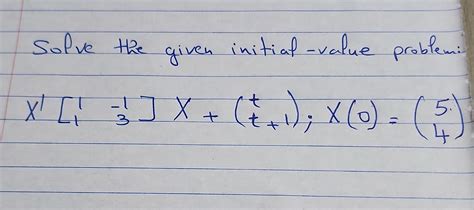 Solve the given initial-value problem:
X' [1 -1
1 3] X + (t
t+1); X(0) = (5
4)